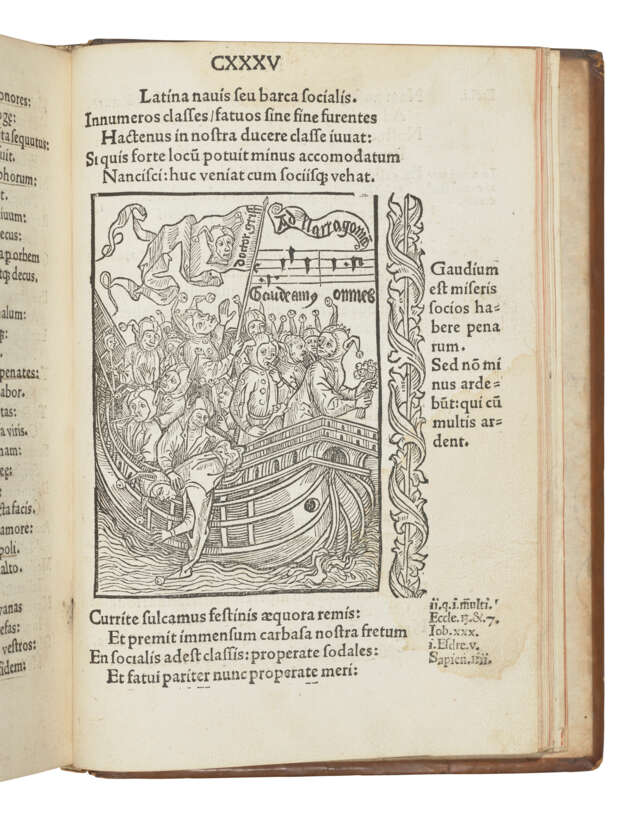 onores:
ta sequutus:
uit.
phorum:
iuum:
ecus:
a p. orbem
tq; decus.
alum:
penates:
abor.
tas:
a viris.
nam:
eę:
cta facis.
amore:
poli.
alto.
vanas
efas:
vestros:
fidem:
CXXXV
Latina nauis seu barca socialis.
Innumeros classes/fatuos sine fine furentes
Hactenus in nostra ducere classe iuuat:
Si quis forte locū potuit minus accomodatum
Nancisci: huc veniat cum sociisq; vehat.
doctor griff
Ad Narragoniā
Gaudeamꝰ omnes
Gaudium
est miseris
socios ha=
bere pena
rum.
Sed nō mi
nus arde=
būt: qui cū
multis ar=
dent.
Currite sulcamus festinis æquora remis:
Et premit immensum carbasa nostra fretum
En socialis adest classis: properate sodales:
Et fatui pariter nunc properate meri:
ii. q. i. multi.
Eccle. &. 7.
Iob. xxx.
i. Esdre. v.
Sapien. iiii.